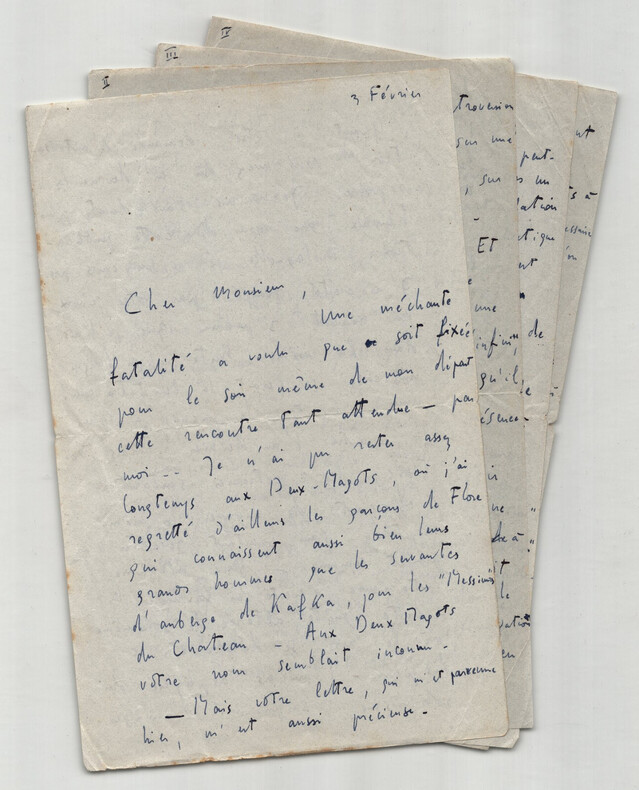 IV
III
II
3 Février
Cher Monsieur,
Une méchante
fatalité a voulu que soit fixée
pour le soir même de mon départ
cette rencontre tant attendue — par
moi -- Je n'ai pu rester assez
longtemps aux Deux-Magots, où j'ai
regretté d'ailleurs les garçons de Flore
qui connaissent aussi bien leurs
grands hommes que les servantes
d'auberge de Kafka, pour les "Messieurs"
du Chateau — Aux Deux Magots
votre nom semblait inconnu -
— Mais votre lettre, qui m'est parvenue
hier, m'est aussi précieuse -
sur une
, sur
ET
une
infini,
qu'il
peut-
un